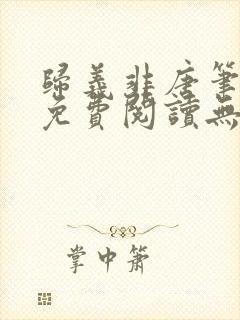 歸義非唐筆
免費閱讀無
掌中簫